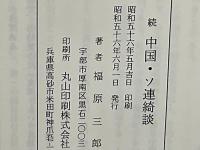 続 中国・ソ連綺談
昭和五十六年五月吉日 印刷
昭和五十六年六月一日 発行
著者 福原三郎
宇部市厚南区黒石二〇〇三
印刷所 丸山印刷株式会社
兵庫県高砂市米田町神爪五